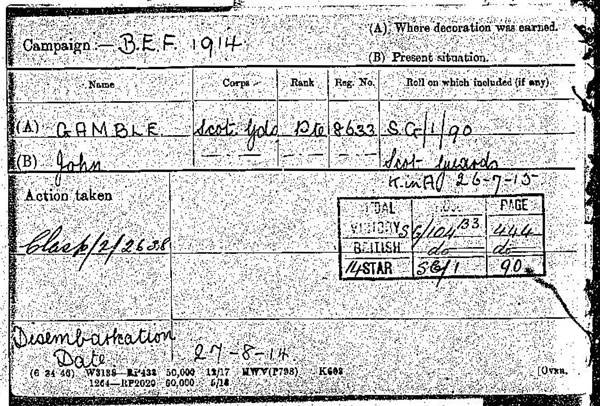 (A) Where decoration was earned.
Campaign:— B.E.F. 1914
(B) Present situation.
Name Corps Rank Reg. No. Roll on which included (if any)
(A) GAMBLE Scot Gds Pte 8633 S.G/1/90
(B) John Scot Guards
K. in A 26-7-15
Action taken
PAGE
VICTORY SG/104 B3 444
BRITISH do do
14 STAR SG/1 90
Clasp/2/2638
Disembarkation
Date 27-8-14
(6 34 46) W3138—RP432 50,000 12/17 HWV(P798) K608 [OVER.
1264—RP2020 50,000 5/18